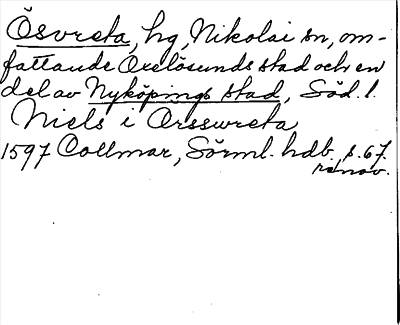 Ösvreta, hg, Nikolai sn, om-
fattande Oxelösunds stad och en
del av Nyköpings stad, Söd. l.
Niels i Orsswreta
1597 Collmar, Sörml. hdb. s. 67.
renov.